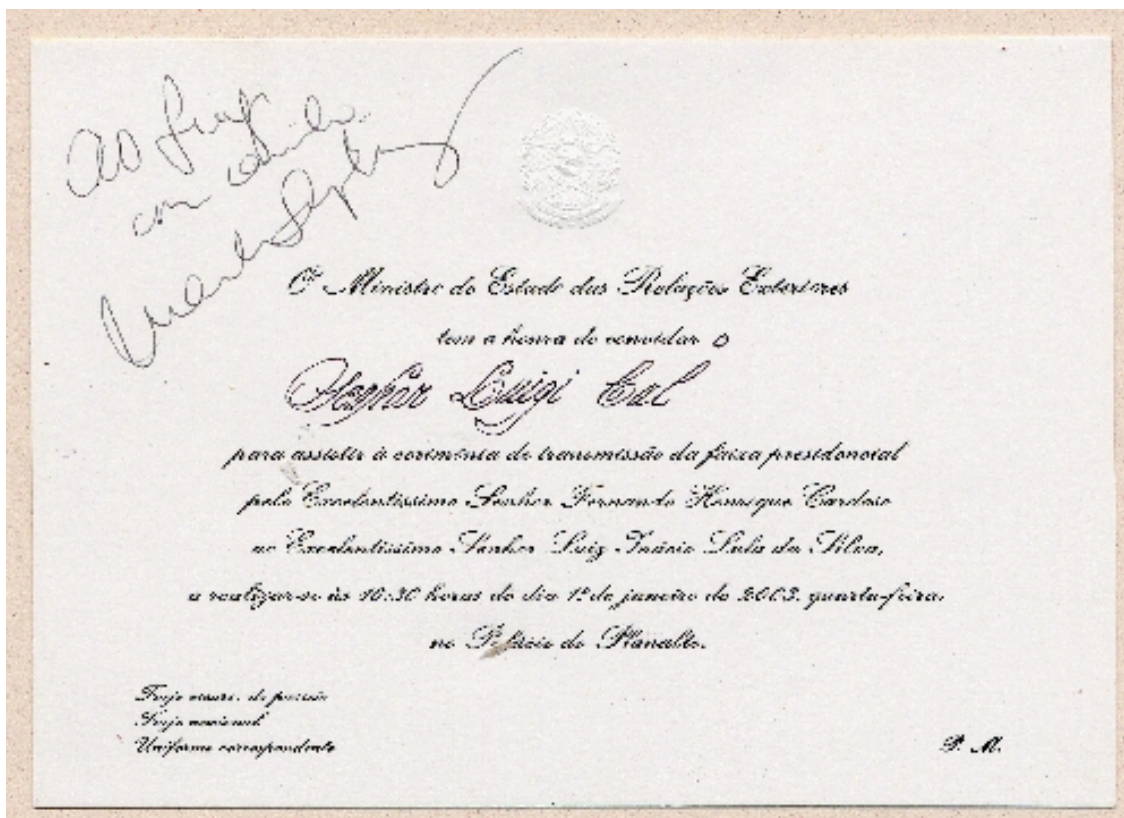 ao Luigi
com
O Ministro de Estado das Relações Exteriores
tem a honra de convidar o
Senhor Luigi Cal
para assistir à cerimônia de transmissão da faixa presidencial
pelo Excelentíssimo Senhor Fernando Henrique Cardoso
ao Excelentíssimo Senhor Luiz Inácio Lula da Silva,
a realizar-se às 10:30 horas do dia 1º de janeiro de 2003, quarta-feira,
no Palácio do Planalto.
Traje escuro, de passeio
Traje nacional
Uniforme correspondente
P. M.